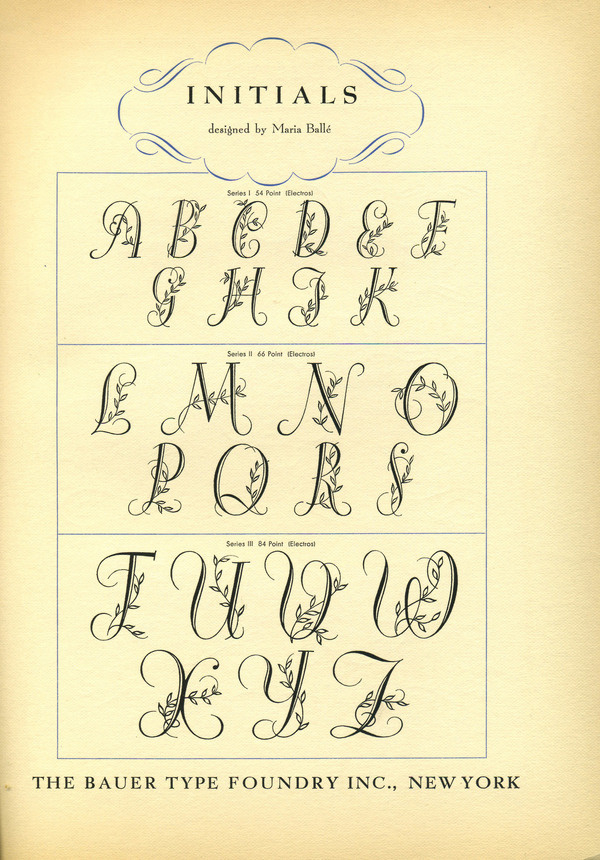 INITIALS
designed by Maria Ballé
Series I 54 Point (Electros)
A B C D E F
G H I K
Series II 66 Point (Electros)
L M N O
P Q R S
Series III 84 Point (Electros)
T U V W
X Y Z
THE BAUER TYPE FOUNDRY INC., NEW YORK